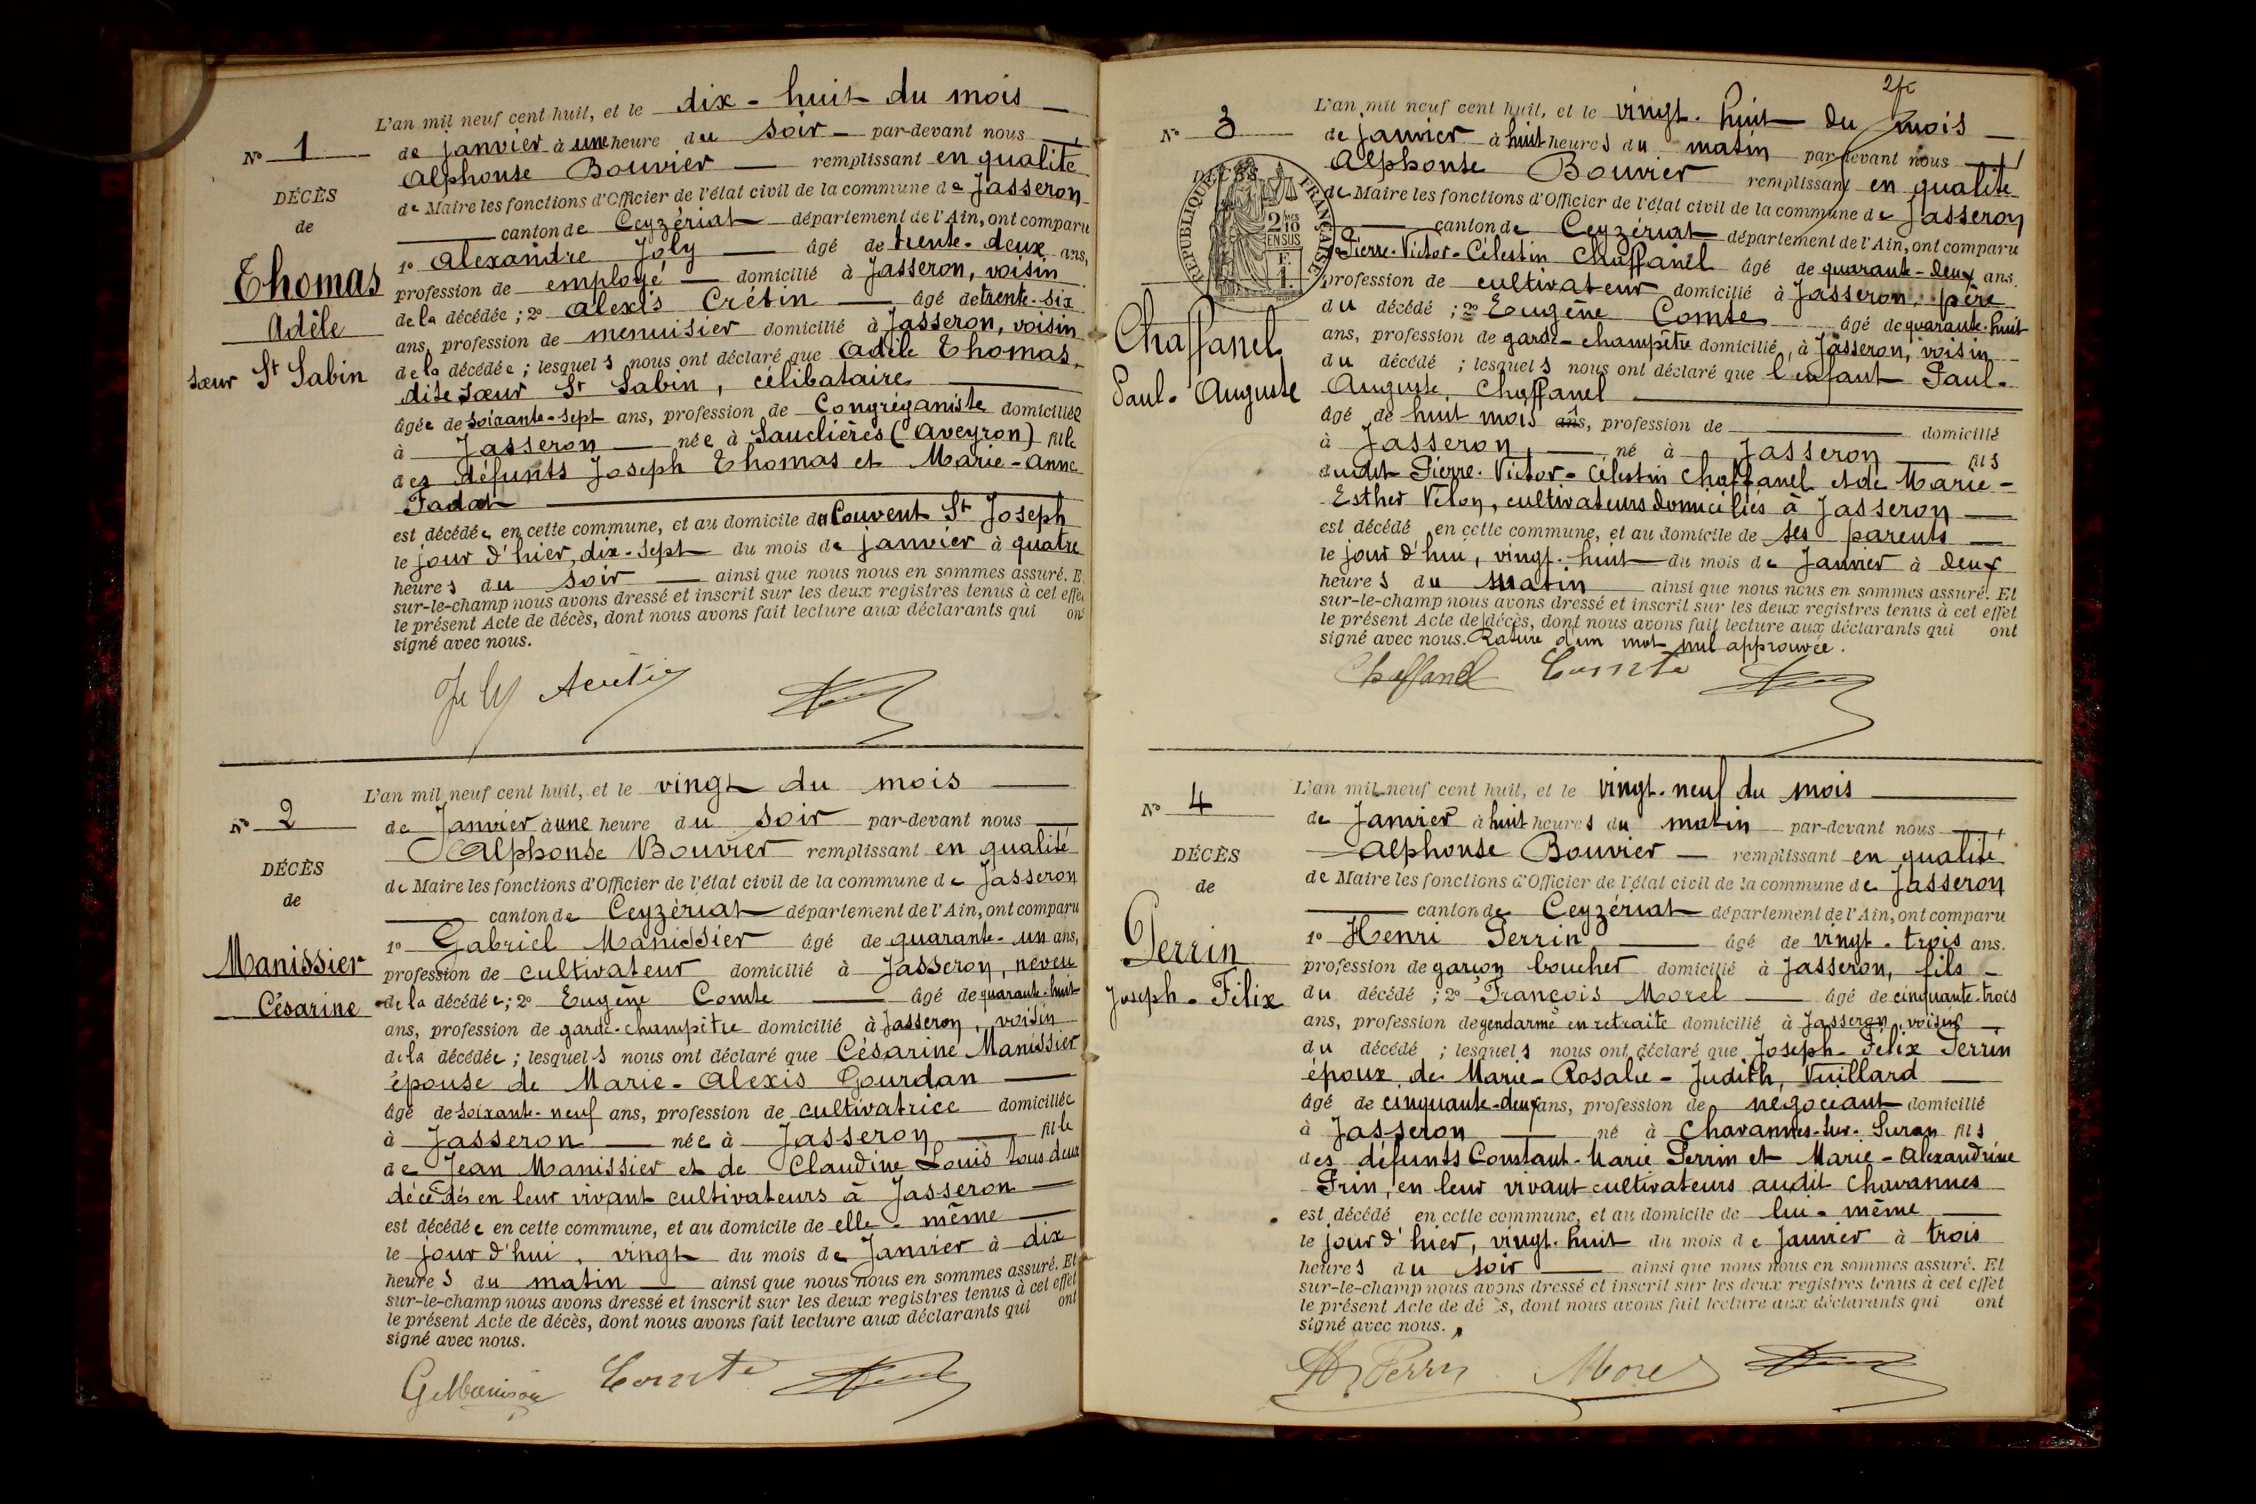 L'an mil neuf cent huit, et le dix-huit du mois
N° 1
de janvier à une heure du soir par-devant nous
Alphonse Bouvier remplissant en qualité
DÉCÈS
de Maire les fonctions d'Officier de l'état civil de la commune de Jasseron
de
canton de Ceyzériat département de l'Ain, ont comparu
1° Alexandre Joly âgé de trente-deux ans,
Thomas
profession de employé domicilié à Jasseron, voisin
de la décédée ; 2° Alexis Crétin âgé de trente-six
Adèle
ans, profession de menuisier domicilié à Jasseron, voisin
sœur St Sabin
de la décédée ; lesquels nous ont déclaré que Adèle Thomas,
dite sœur St Sabin, célibataire
âgée de soixante-sept ans, profession de Congréganiste domiciliée
à Jasseron née à Sauclières (Aveyron) fille
des défunts Joseph Thomas et Marie-Anne
Fadat
est décédée en cette commune, et au domicile du Couvent St Joseph
le jour d'hier, dix-sept du mois de janvier à quatre
heures du soir ainsi que nous nous en sommes assuré. E
sur-le-champ nous avons dressé et inscrit sur les deux registres tenus à cet effe
le présent Acte de décès, dont nous avons fait lecture aux déclarants qui ont
signé avec nous.
Joly
L'an mil neuf cent huit, et le vingt du mois
N° 2
de Janvier à une heure du soir par-devant nous
Alphonse Bouvier remplissant en qualité
DÉCÈS
de Maire les fonctions d'Officier de l'état civil de la commune de Jasseron
de
canton de Ceyzériat département de l'Ain, ont comparu
1° Gabriel Manissier âgé de quarante-un ans,
Manissier
profession de cultivateur domicilié à Jasseron, neveu
Césarine
de la décédée ; 2° Eugène Comte âgé de quarante-huit
ans, profession de garde-champêtre domicilié à Jasseron, voisin
de la décédée ; lesquels nous ont déclaré que Césarine Manissier
épouse de Marie-Alexis Gourdan
âgé de soixante-neuf ans, profession de cultivatrice domiciliée
à Jasseron née à Jasseron fille
de Jean Manissier et de Claudine Louis tous deux
décédés en leur vivant cultivateurs à Jasseron
est décédée en cette commune, et au domicile de elle-même
le jour d'hui, vingt du mois de Janvier à dix
heures du matin ainsi que nous nous en sommes assuré. Et
sur-le-champ nous avons dressé et inscrit sur les deux registres tenus à cet effet
le présent Acte de décès, dont nous avons fait lecture aux déclarants qui ont
signé avec nous.
G. Manissier Comte
2fc
L'an mil neuf cent huit, et le vingt-huit du mois
N° 3
de janvier à huit heures du matin par-devant nous
Alphonse Bouvier remplissant en qualité
DÉCÈS
RÉPUBLIQUE FRANÇAISE
2/10 EN SUS
F. 1.
de Maire les fonctions d'Officier de l'état civil de la commune de Jasseron
canton de Ceyzériat département de l'Ain, ont comparu
Pierre-Victor-Célestin Chaffanel âgé de quarante-deux ans.
profession de cultivateur domicilié à Jasseron, père
du décédé ; 2° Eugène Comte âgé de quarante-huit
Chaffanel
ans, profession de garde-champêtre domicilié à Jasseron, voisin
du décédé ; lesquels nous ont déclaré que l'enfant Paul-
Paul-Auguste
Auguste Chaffanel
âgé de huit mois ans, profession de domicilié
à Jasseron né à Jasseron fils
dudit Pierre-Victor-Célestin Chaffanel et de Marie-
Esther Vélon, cultivateurs domiciliés à Jasseron
est décédé en cette commune, et au domicile de ses parents
le jour d'hui, vingt-huit du mois de Janvier à deux
heures du matin ainsi que nous nous en sommes assuré. Et
sur-le-champ nous avons dressé et inscrit sur les deux registres tenus à cet effet
le présent Acte de décès, dont nous avons fait lecture aux déclarants qui ont
signé avec nous. Rature d'un mot nul approuvée.
Chaffanel Comte
L'an mil neuf cent huit, et le vingt-neuf du mois
N° 4
de Janvier à huit heures du matin par-devant nous
Alphonse Bouvier remplissant en qualité
DÉCÈS
de Maire les fonctions d'Officier de l'état civil de la commune de Jasseron
de
canton de Ceyzériat département de l'Ain, ont comparu
1° Henri Perrin âgé de vingt-trois ans.
Perrin
profession de garçon boucher domicilié à Jasseron, fils
Joseph-Félix
du décédé ; 2° François Morel âgé de cinquante-trois
ans, profession de gendarme en retraite domicilié à Jasseron, voisin
du décédé ; lesquels nous ont déclaré que Joseph-Félix Perrin
époux de Marie-Rosalie-Judith Vuillard
âgé de cinquante-deux ans, profession de négociant domicilié
à Jasseron né à Chavannes-sur-Suran fils
des défunts Constant-Marie Perrin et Marie-Alexandrine
Frin, en leur vivant cultivateurs audit Chavannes
est décédé en cette commune, et au domicile de lui-même
le jour d'hier, vingt-huit du mois de Janvier à trois
heures du soir ainsi que nous nous en sommes assuré. Et
sur-le-champ nous avons dressé et inscrit sur les deux registres tenus à cet effet
le présent Acte de dé s, dont nous avons fait lecture aux déclarants qui ont
signé avec nous.
H. Perrin Morel